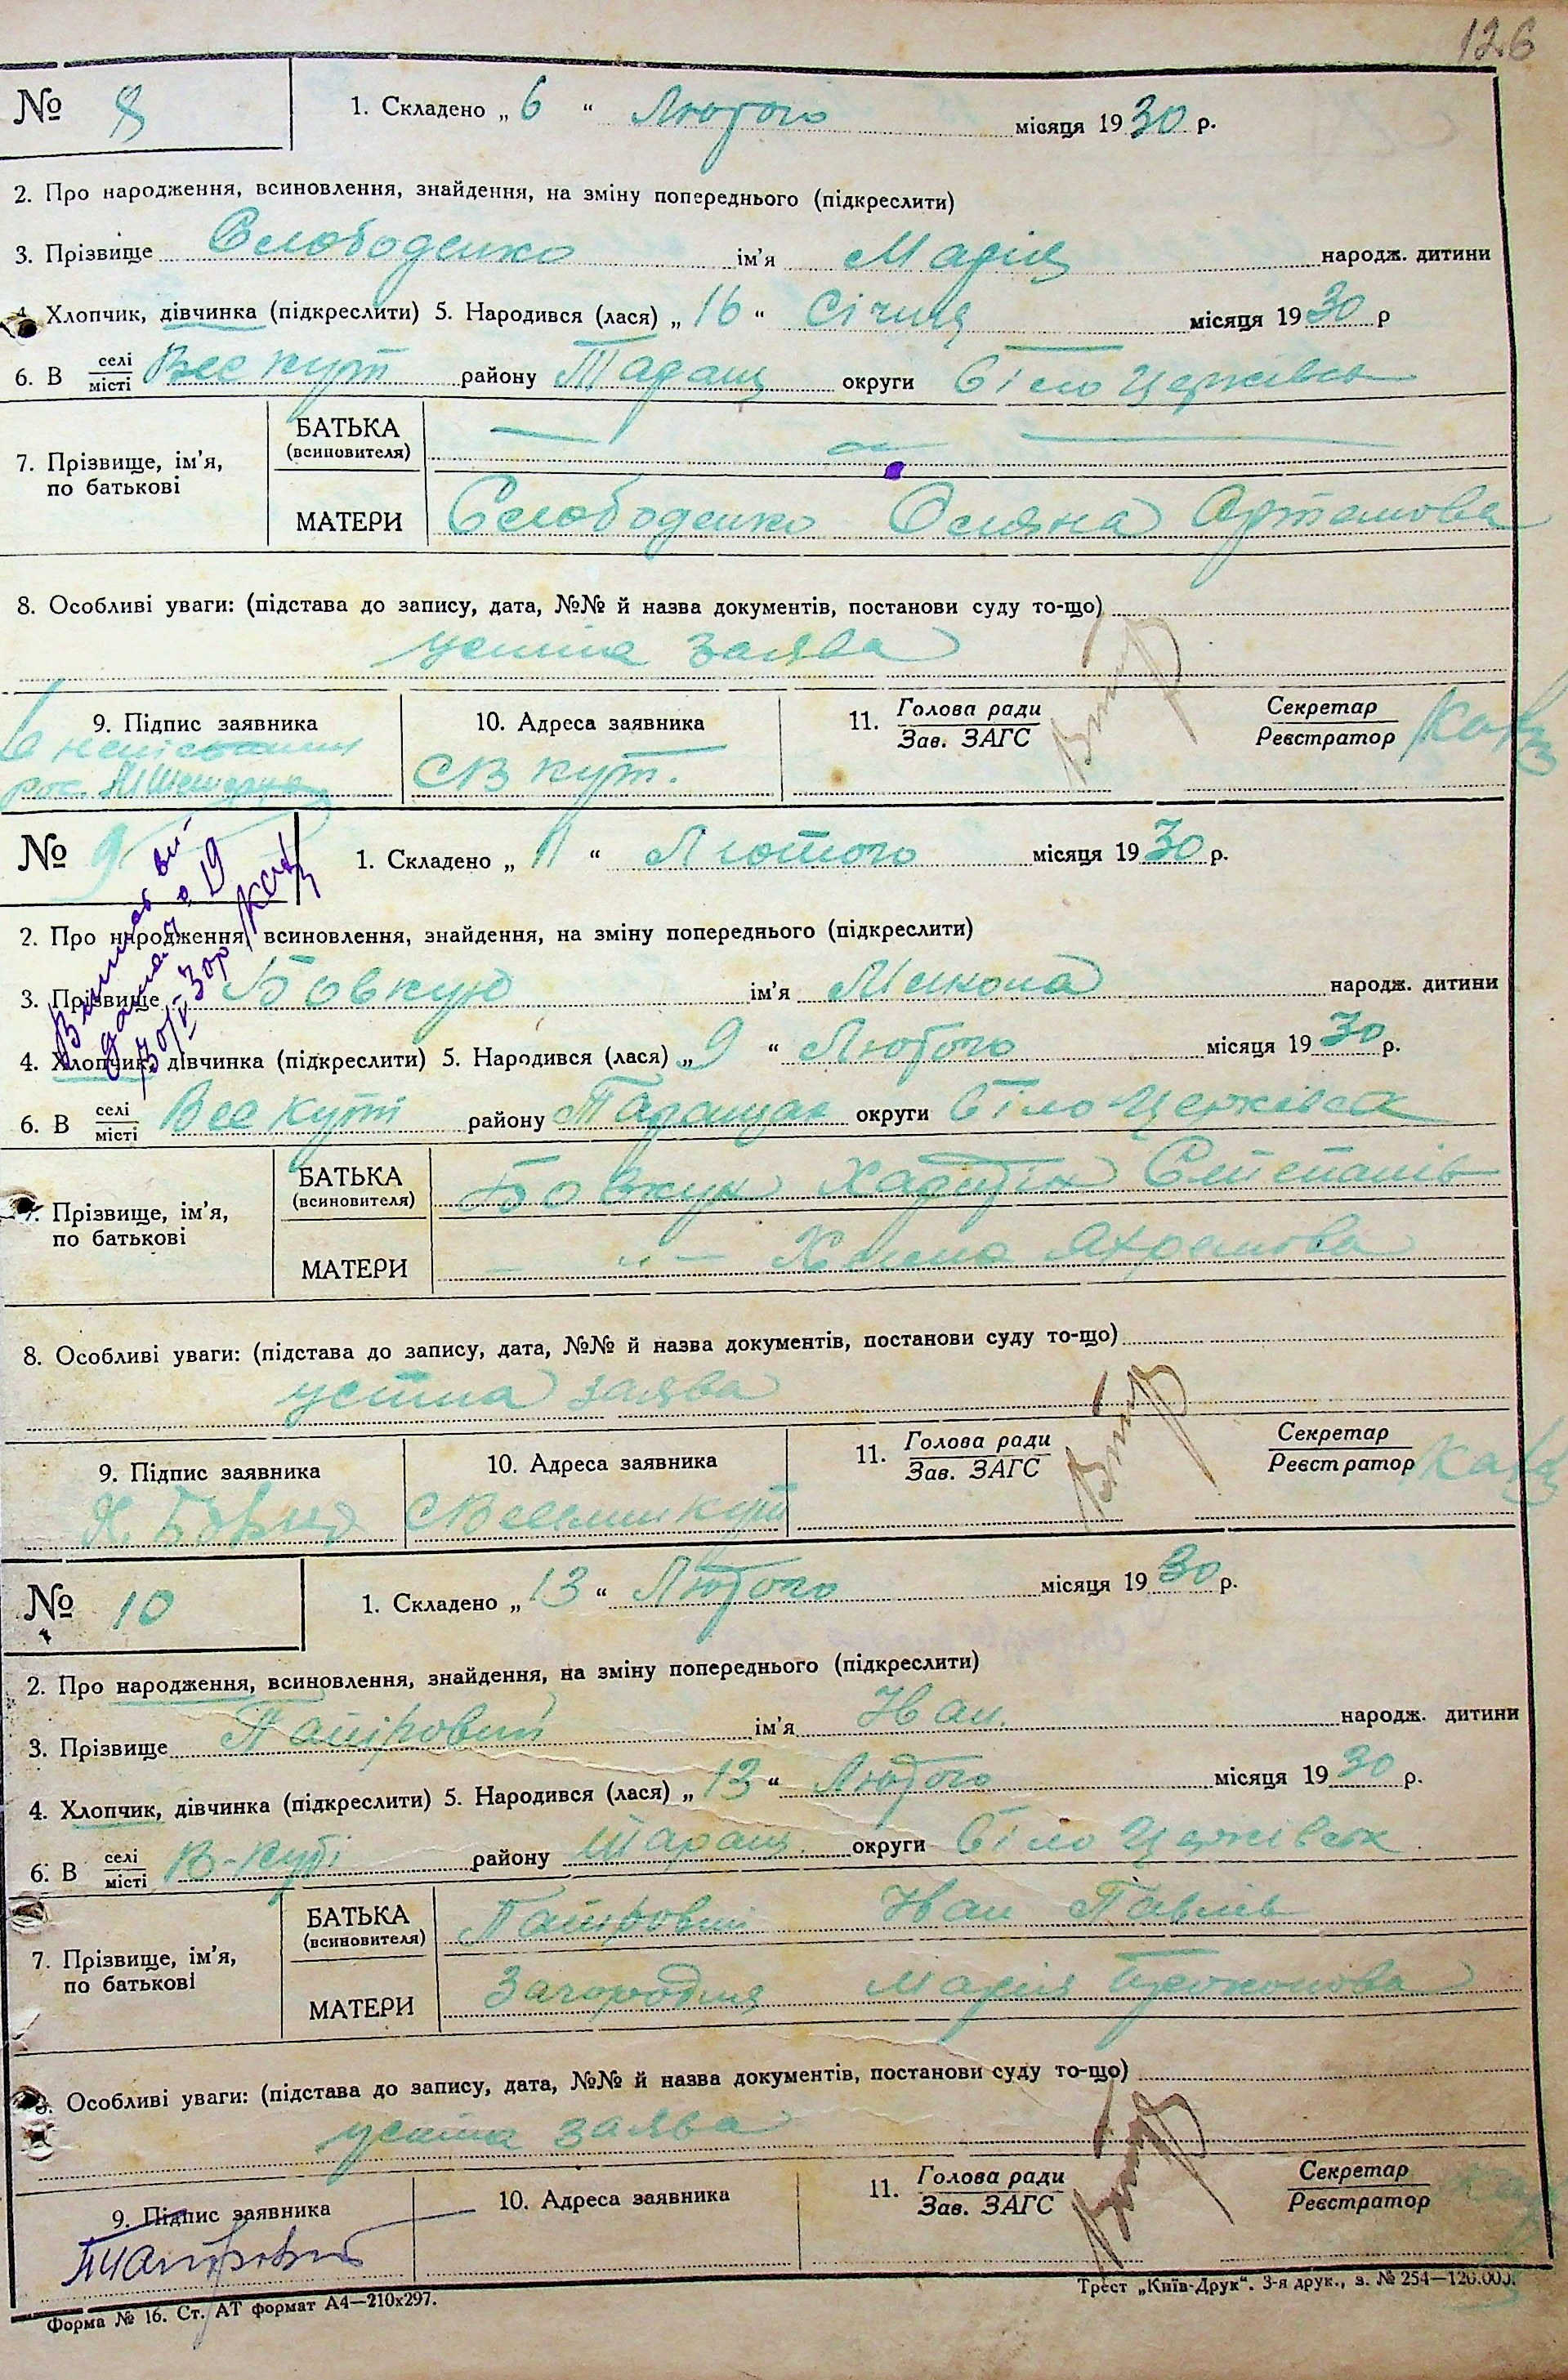 126
№ 8 1. Складено „ 6 “ Лютого місяця 1930 р.
2. Про народження, всиновлення, знайдення, на зміну попереднього (підкреслити)
3. Прізвище Слободенко ім'я Марія народж. дитини
4. Хлопчик, дівчинка (підкреслити) 5. Народився (лася) „ 16 “ Січня місяця 1930 р
6. В селі місті Вес кут району Таращ округи Біло Церківськ
7. Прізвище, ім'я, по батькові
БАТЬКА (всиновителя) — — —
МАТЕРИ Слободенко Оляна Артемова
8. Особливі уваги: (підстава до запису, дата, №№ й назва документів, постанови суду то-що)
устна заява
9. Підпис заявника 10. Адреса заявника 11. Голова ради Зав. ЗАГС Секретар Реєстратор
с В кут.
№ 9 1. Складено „ 11 “ Лютого місяця 1930 р.
2. Про народження, всиновлення, знайдення, на зміну попереднього (підкреслити)
3. Прізвище Бовкун ім'я Микола народж. дитини
4. Хлопчик, дівчинка (підкреслити) 5. Народився (лася) „ 9 “ Лютого місяця 1930 р.
6. В селі місті Вес куті району Таращас округи Біло Церківськ
7. Прізвище, ім'я, по батькові
БАТЬКА (всиновителя) Бовкун Харитін Степанів
МАТЕРИ — „ —
8. Особливі уваги: (підстава до запису, дата, №№ й назва документів, постанови суду то-що)
устна заява
9. Підпис заявника 10. Адреса заявника 11. Голова ради Зав. ЗАГС Секретар Реєстратор
Х. Бовкун с Веселий кут
№ 10 1. Складено „ 13 “ Лютого місяця 1930 р.
2. Про народження, всиновлення, знайдення, на зміну попереднього (підкреслити)
3. Прізвище ім'я Иван. народж. дитини
4. Хлопчик, дівчинка (підкреслити) 5. Народився (лася) „ 13 “ Лютого місяця 1930 р.
6. В селі місті В-Куті району Таращ. округи Біло Церківськ
7. Прізвище, ім'я, по батькові
БАТЬКА (всиновителя) Иван Павлів
МАТЕРИ Загородня Марія Прокопова
8. Особливі уваги: (підстава до запису, дата, №№ й назва документів, постанови суду то-що)
устна заява
9. Підпис заявника 10. Адреса заявника 11. Голова ради Зав. ЗАГС Секретар Реєстратор
Форма № 16. Ст. АТ формат А4—210x297. Трест „Київ-Друк“. 3-я друк., з. № 254—120.000.